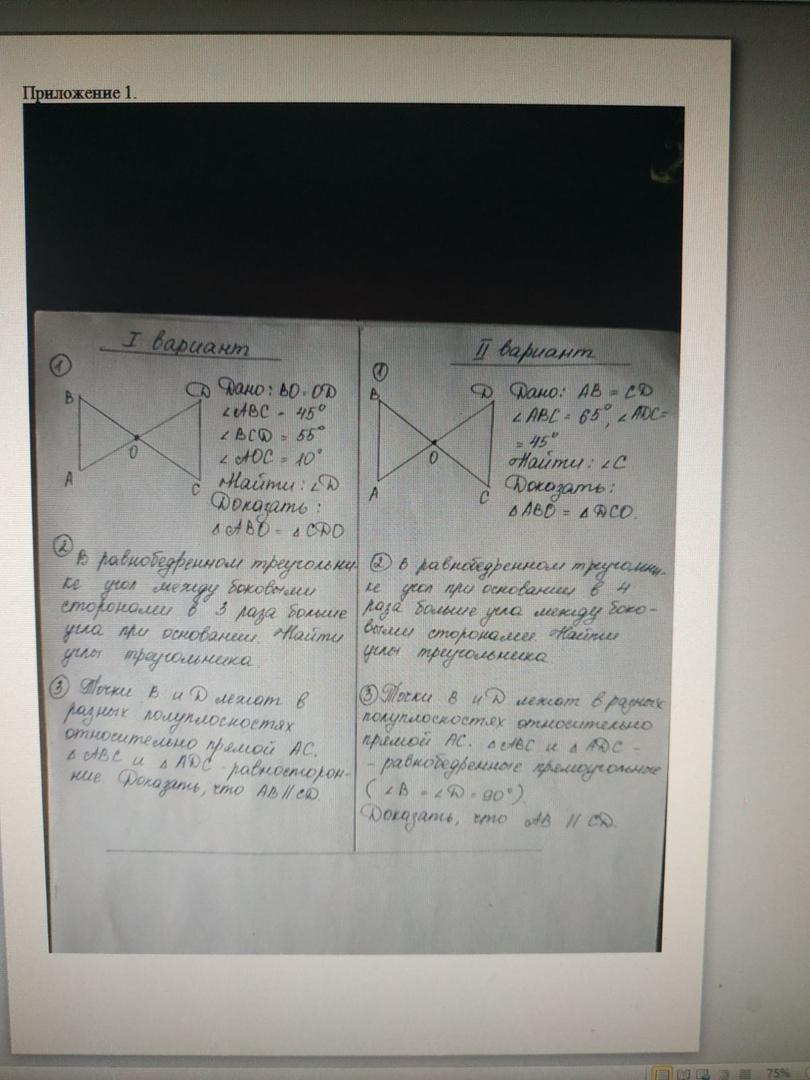 Приложение 1.
I вариант
1
B
D
O
A
C
Дано: BO = OD
∠ABC = 45°
∠BCD = 55°
∠AOC = 10°
Найти: ∠D
Доказать:
△ABO = △CDO
2 В равнобедренном треугольни-
ке угол между боковыми
сторонами в 3 раза больше
угла при основании. Найти
углы треугольника
3 Точки B и D лежат в
разных полуплоскостях
относительно прямой AC.
△ABC и △ADC - равносторон-
ние. Доказать, что AB || CD.
II вариант
1
B
D
O
A
C
Дано: AB = CD
∠ABC = 65°, ∠ADC=
= 45°
Найти: ∠C
Доказать:
△ABO = △DCO.
2 В равнобедренном треугольни-
ке угол при основании в 4
раза больше угла между боко-
выми сторонами. Найти
углы треугольника
3 Точки B и D лежат в разных
полуплоскостях относительно
прямой AC. △ABC и △ADC -
- равнобедренные прямоугольные
(∠B = ∠D = 90°)
Доказать, что AB || CD.
75%